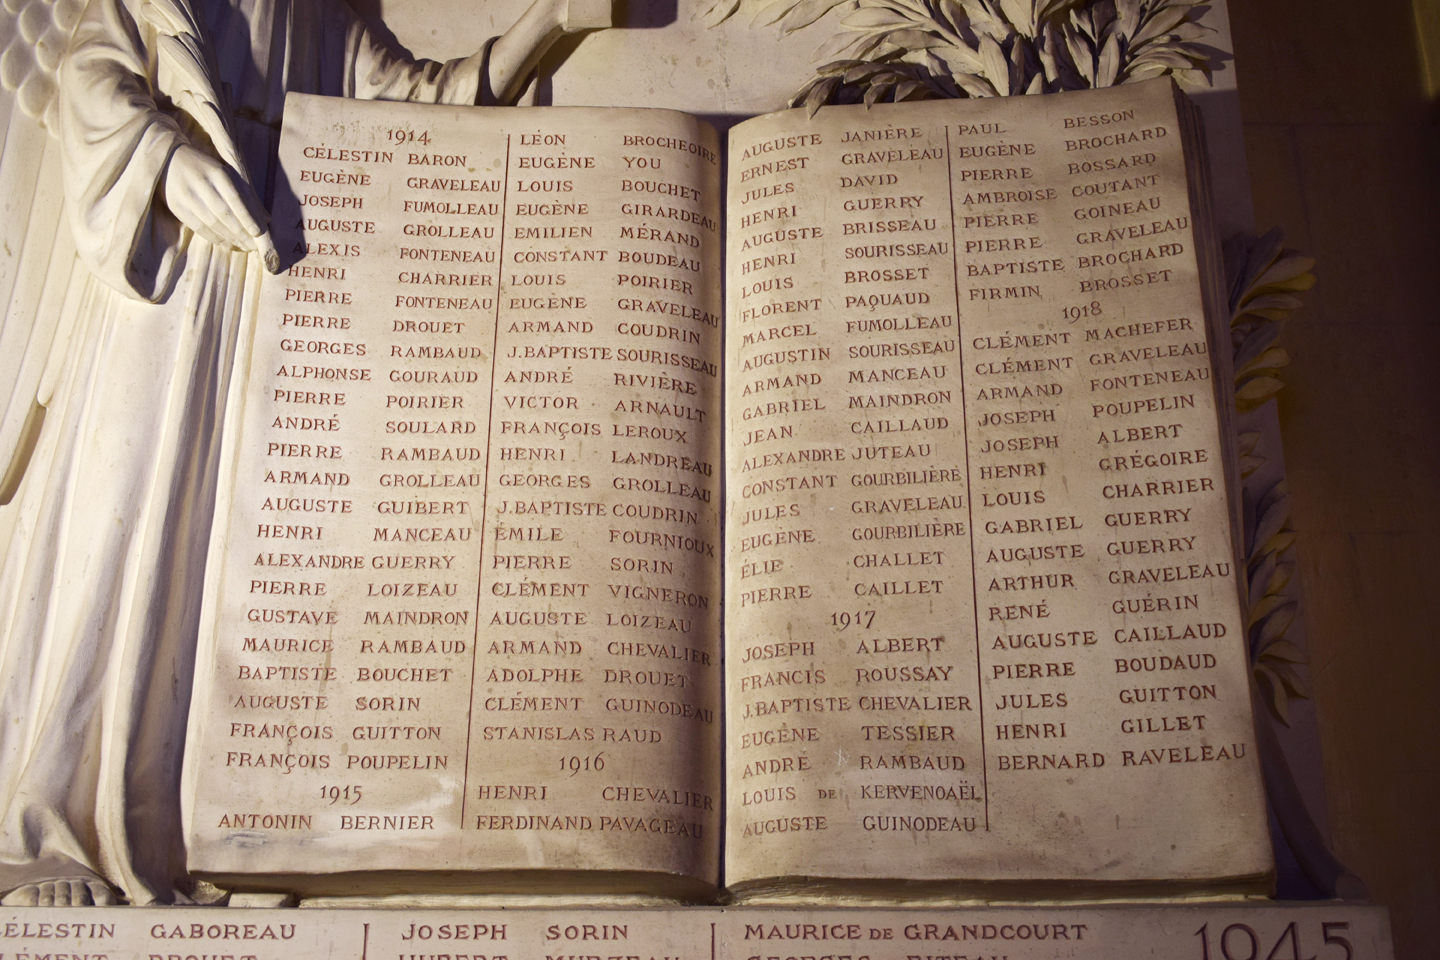 1914
CÉLESTIN BARON
EUGÈNE GRAVELEAU
JOSEPH FUMOLLEAU
AUGUSTE GROLLEAU
ALEXIS FONTENEAU
HENRI CHARRIER
PIERRE FONTENEAU
PIERRE DROUET
GEORGES RAMBAUD
ALPHONSE GOURAUD
PIERRE POIRIER
ANDRÉ SOULARD
PIERRE RAMBAUD
ARMAND GROLLEAU
AUGUSTE GUIBERT
HENRI MANCEAU
ALEXANDRE GUERRY
PIERRE LOIZEAU
GUSTAVE MAINDRON
MAURICE RAMBAUD
BAPTISTE BOUCHET
AUGUSTE SORIN
FRANÇOIS GUITTON
FRANÇOIS POUPELIN
1915
ANTONIN BERNIER
LÉON BROCHEOIRE
EUGÈNE YOU
LOUIS BOUCHET
EUGÈNE GIRARDEAU
EMILIEN MÉRAND
CONSTANT BOUDEAU
LOUIS POIRIER
EUGÈNE GRAVELEAU
ARMAND COUDRIN
J.BAPTISTE SOURISSEAU
ANDRÉ RIVIÈRE
VICTOR ARNAULT
FRANÇOIS LEROUX
HENRI LANDREAU
GEORGES GROLLEAU
J.BAPTISTE COUDRIN
ÉMILE FOURNIOUX
PIERRE SORIN
CLÉMENT VIGNERON
AUGUSTE LOIZEAU
ARMAND CHEVALIER
ADOLPHE DROUET
CLÉMENT GUINODEAU
STANISLAS RAUD
1916
HENRI CHEVALIER
FERDINAND PAVAGEAU
AUGUSTE JANIÈRE
ERNEST GRAVELEAU
JULES DAVID
HENRI GUERRY
AUGUSTE BRISSEAU
HENRI SOURISSEAU
LOUIS BROSSET
FLORENT PAQUAUD
MARCEL FUMOLLEAU
AUGUSTIN SOURISSEAU
ARMAND MANCEAU
GABRIEL MAINDRON
JEAN CAILLAUD
ALEXANDRE JUTEAU
CONSTANT GOURBILIÈRE
JULES GRAVELEAU
EUGÈNE GOURBILIÈRE
ÉLIE CHALLET
PIERRE CAILLET
1917
JOSEPH ALBERT
FRANCIS ROUSSAY
J.BAPTISTE CHEVALIER
EUGÈNE TESSIER
ANDRÉ RAMBAUD
LOUIS DE KERVENOAËL
AUGUSTE GUINODEAU
PAUL BESSON
EUGÈNE BROCHARD
PIERRE BOSSARD
AMBROISE COUTANT
PIERRE GOINEAU
PIERRE GRAVELEAU
BAPTISTE BROCHARD
FIRMIN BROSSET
1918
CLÉMENT MACHEFER
CLÉMENT GRAVELEAU
ARMAND FONTENEAU
JOSEPH POUPELIN
JOSEPH ALBERT
HENRI GRÉGOIRE
LOUIS CHARRIER
GABRIEL GUERRY
AUGUSTE GUERRY
ARTHUR GRAVELEAU
RENÉ GUÉRIN
AUGUSTE CAILLAUD
PIERRE BOUDAUD
JULES GUITTON
HENRI GILLET
BERNARD RAVELEAU
CÉLESTIN GABOREAU
JOSEPH SORIN
MAURICE DE GRANDCOURT
1945